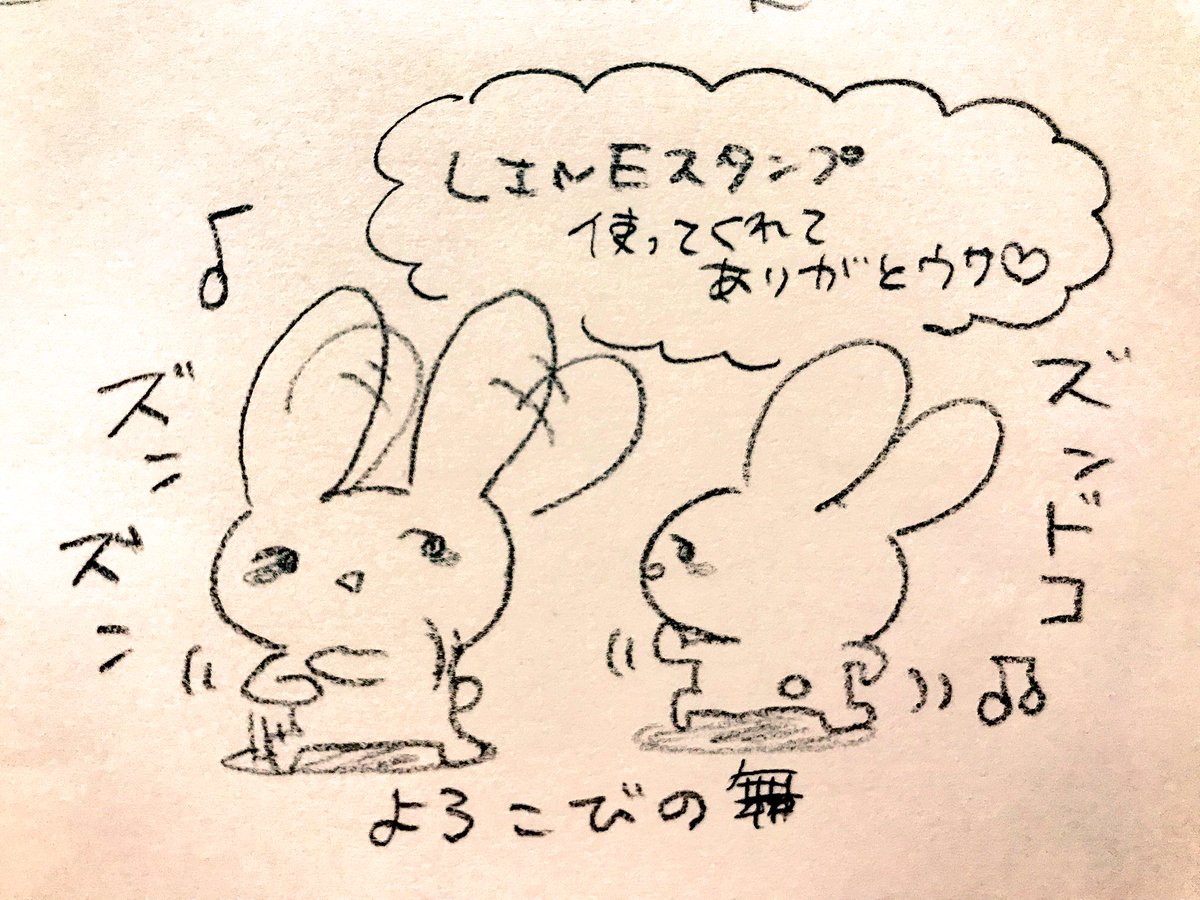 LINEスタンプ
使ってくれて
ありがとウサ♡
ズン
ズン
ズンドコ
よろこびの